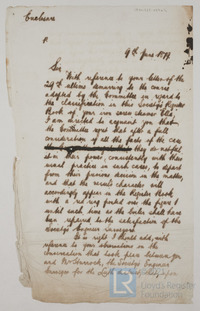 Enclosure
9th June 1879
Sir
With reference to your letter of the
29th ultimo demurring to the course
adopted by the Committee in regard to
the classification in this Society's Register
Book of your iron screw steamer
I am directed to acquaint you that
the Committee regret that after a full
consideration of all the facts of the case
they do not feel
it in their power, consistently with their
usual practice in such cases, to depart
from their previous decision in the matter
and that the vessel's character will
accordingly appear in the Register Book
with a red ring posted over the figure 1
until such time as the boilers shall have
been repaired to the satisfaction of the
Society's Engineer Surveyors
It is right I should add, with
reference to your observations on the
conversation that took place between you
and Mr the Society's Engineer
Surveyor for the
Lloyd's Register
Foundation